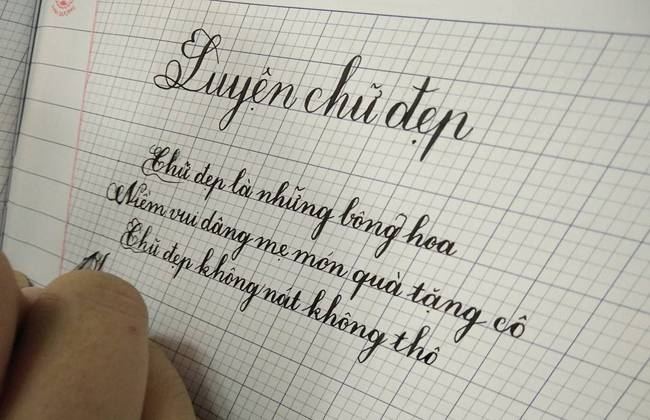 Luyện chữ đẹp
Chữ đẹp là những bông hoa
Niềm vui dâng mẹ mon quà tặng cô
Chữ đẹp không nát không thô